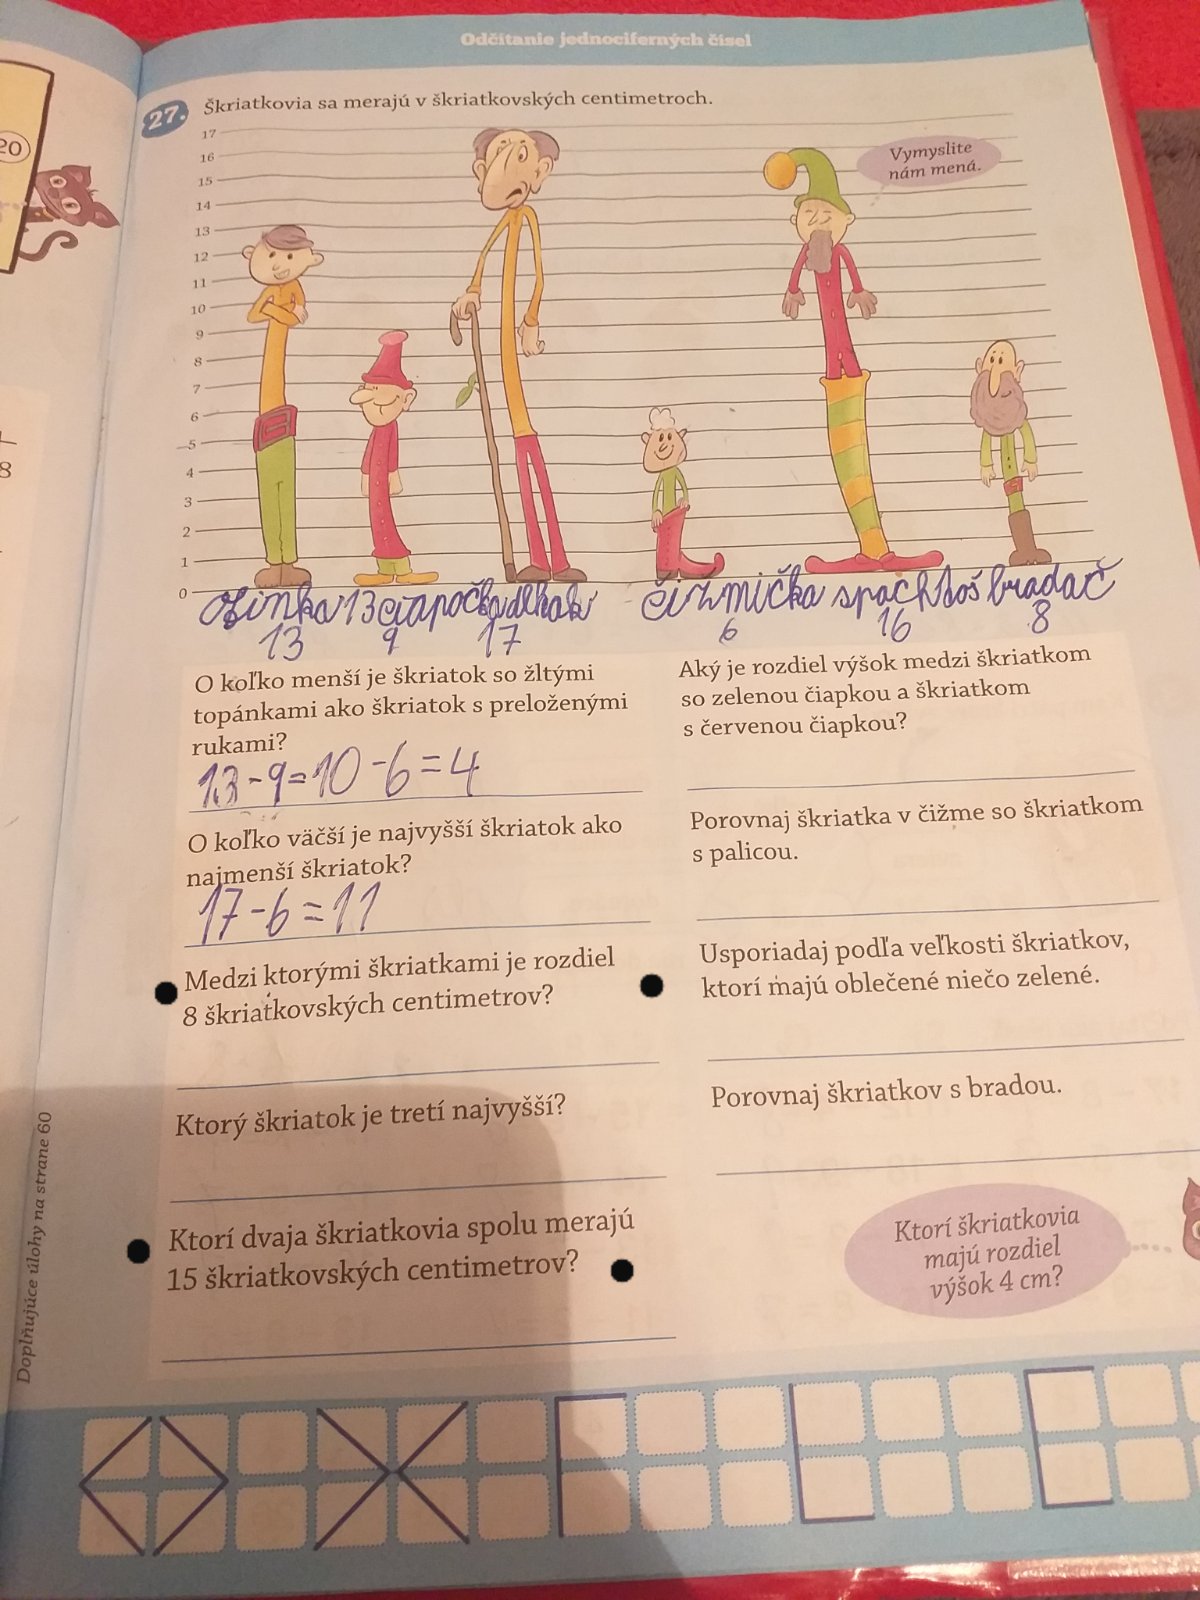 Odčítanie jednociferných čísel
27. Škriatkovia sa merajú v škriatkovských centimetroch.
20
8
17
16
15
14
13
12
11
10
9
8
7
6
5
4
3
2
1
0
Vymyslite
nám mená.
13 čiapočka dlháň čižmička spachtoš bradač
13 9 17 6 16 8
O koľko menší je škriatok so žltými
topánkami ako škriatok s preloženými
rukami?
13-9=10-6=4
O koľko väčší je najvyšší škriatok ako
najmenší škriatok?
17-6=11
Medzi ktorými škriatkami je rozdiel
8 škriatkovských centimetrov?
Ktorý škriatok je tretí najvyšší?
Ktorí dvaja škriatkovia spolu merajú
15 škriatkovských centimetrov?
Aký je rozdiel výšok medzi škriatkom
so zelenou čiapkou a škriatkom
s červenou čiapkou?
Porovnaj škriatka v čižme so škriatkom
s palicou.
Usporiadaj podľa veľkosti škriatkov,
ktorí majú oblečené niečo zelené.
Porovnaj škriatkov s bradou.
Ktorí škriatkovia
majú rozdiel
výšok 4 cm?
Doplňujúce úlohy na strane 60